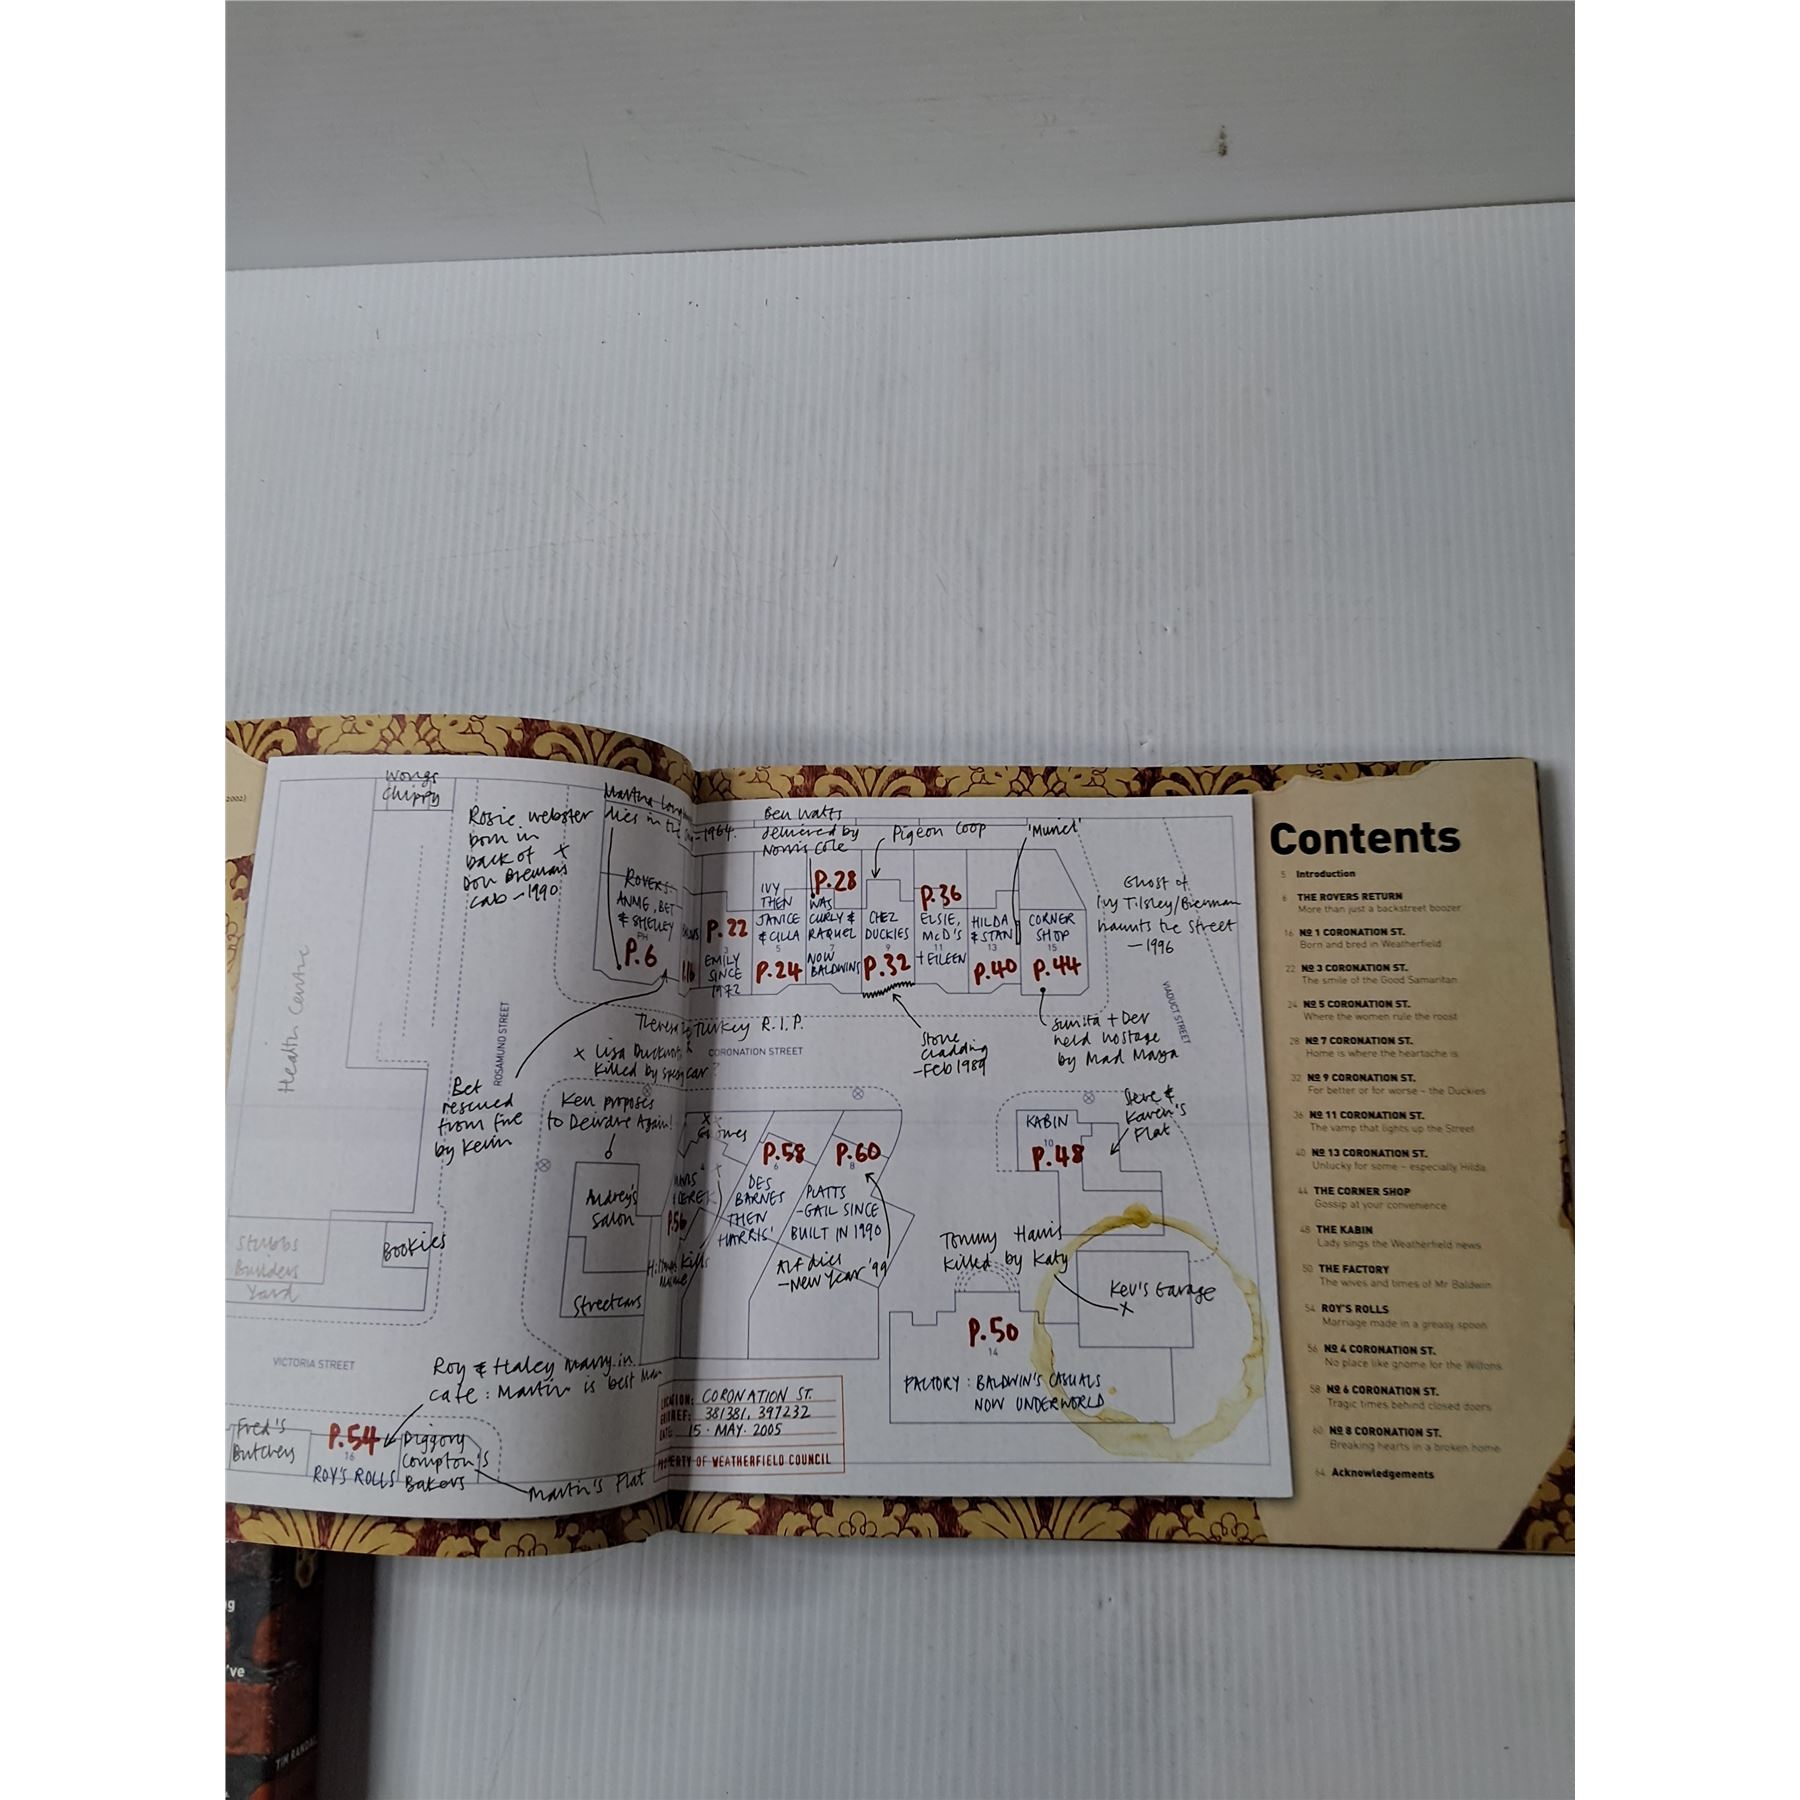 2002)
Wongs
Chippy
Rosie Webster
born in
back of X
Don Brennan's
cab - 1990
Martha Long
dies in the
- 1964.
Ben Watts
delivered by
Norris Cole
Pigeon Coop
'Muriel'
Ghost of
Ivy Tilsley/Brennan
haunts the Street
- 1996
ROVERS
ANNIE, BET
& SHELLEY
PH
P.6
P.16
P.22
3
EMILY
SINCE
1972
IVY
THEN
JANICE
& CILLA
5
P.24
P.28
WAS
CURLY &
RAQUEL
7
NOW
BALDWINS
CHEZ
DUCKIES
9
P.32
P.36
ELSIE,
McD'S
11
+ EILEEN
HILDA
& STAN
13
P.40
CORNER
SHOP
15
P.44
Health Centre
ROSAMUND STREET
VIADUCT STREET
Theresa the Turkey R.I.P.
X Lisa Duckworth
killed by speedy car
CORONATION STREET
Stone
cladding
- Feb 1989
Sunita + Dev
held hostage
by Mad Maya
Bet
rescued
from fire
by Kevin
Ken proposes
to Deirdre Again!
Gnomes
4
& DEREK
P.56
P.58
6
DES
BARNES
THEN
HARRIS'
P.60
8
PLATTS
- GAIL SINCE
BUILT IN 1990
Alf dies
- New Year '99
KABIN
10
P.48
Steve &
Karen's
Flat
Audrey's
Salon
Streetcars
Hillman kills
Maxine
Stubbs
Builders
Yard
Bookies
Tommy Harris
killed by Katy
X
Kev's Garage
P.50
14
FACTORY: BALDWIN'S CASUALS
NOW UNDERWORLD
VICTORIA STREET
Roy & Haley Marry in
cafe: Martin is best man
Fred's
Butchers
P.54
16
ROY'S ROLLS
Diggory
Compton's
Bakers
Martin's Flat
LOCATION: CORONATION ST.
GRID REF: 381381, 397232
DATE: 15 · MAY · 2005
PROPERTY OF WEATHERFIELD COUNCIL
Contents
5 Introduction
6 THE ROVERS RETURN
More than just a backstreet boozer
16 Nº 1 CORONATION ST.
Born and bred in Weatherfield
22 Nº 3 CORONATION ST.
The smile of the Good Samaritan
24 Nº 5 CORONATION ST.
Where the women rule the roost
28 Nº 7 CORONATION ST.
Home is where the heartache is
32 Nº 9 CORONATION ST.
For better or for worse – the Duckies
36 Nº 11 CORONATION ST.
The vamp that lights up the Street
40 Nº 13 CORONATION ST.
Unlucky for some – especially Hilda
44 THE CORNER SHOP
Gossip at your convenience
48 THE KABIN
Lady sings the Weatherfield news
50 THE FACTORY
The wives and times of Mr Baldwin
54 ROY'S ROLLS
Marriage made in a greasy spoon
56 Nº 4 CORONATION ST.
No place like gnome for the Wiltons
58 Nº 6 CORONATION ST.
Tragic times behind closed doors
60 Nº 8 CORONATION ST.
Breaking hearts in a broken home
64 Acknowledgements
've
TIM RANDAL